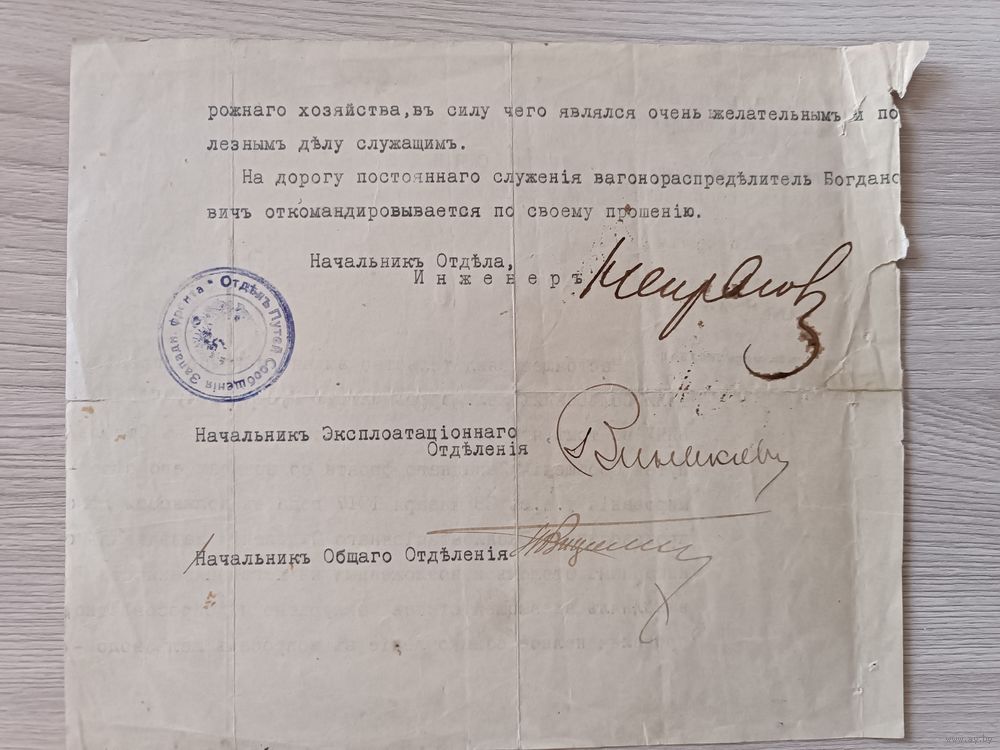 рожнаго хозяйства,въ силу чего являлся очень желательнымъ и по
лезнымъ дѣлу служащимъ.
На дорогу постояннаго служенія вагонораспредѣлитель Богдано
вичъ откомандировывается по своему прошенію.
Начальникъ Отдѣла,
Инженеръ Некрасов
Отдѣлъ Путей Сообщенія Западн. фронта
Начальникъ Эксплоатаціоннаго
Отдѣленія
Начальникъ Общаго Отдѣленія
www.ay.by